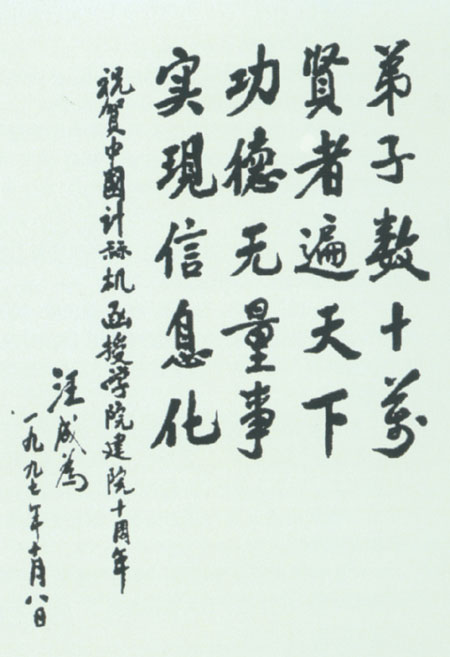 弟子数十万
贤者遍天下
功德无量事
实现信息化
祝贺中國计祘机函授学院建院十周年
汪成为
一九九七年十月八日